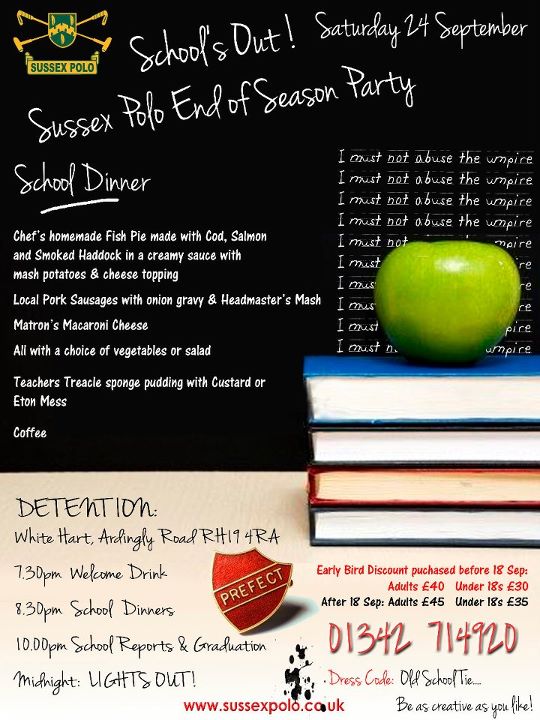 SUSSEX POLO
School's Out! Saturday 24 September
Sussex Polo End of Season Party
School Dinner
Chef's homemade Fish Pie made with Cod, Salmon
and Smoked Haddock in a creamy sauce with
mash potatoes & cheese topping
Local Pork Sausages with onion gravy & Headmaster's Mash
Matron's Macaroni Cheese
All with a choice of vegetables or salad
Teachers Treacle sponge pudding with Custard or
Eton Mess
Coffee
I must not abuse the umpire
I must not abuse the umpire
I must not abuse the umpire
I must not abuse the umpire
I must not umpire
I must mpire
I must pire
I must pire
I must mpire
I must n umpire
DETENTION:
White Hart, Ardingly Road RH19 4RA
7.30pm Welcome Drink
8.30pm School Dinners
10.00pm School Reports & Graduation
Midnight: LIGHTS OUT!
PREFECT
Early Bird Discount puchased before 18 Sep:
Adults £40 Under 18s £30
After 18 Sep: Adults £45 Under 18s £35
01342 714920
Dress Code: Old School Tie....
Be as creative as you like!
www.sussexpolo.co.uk